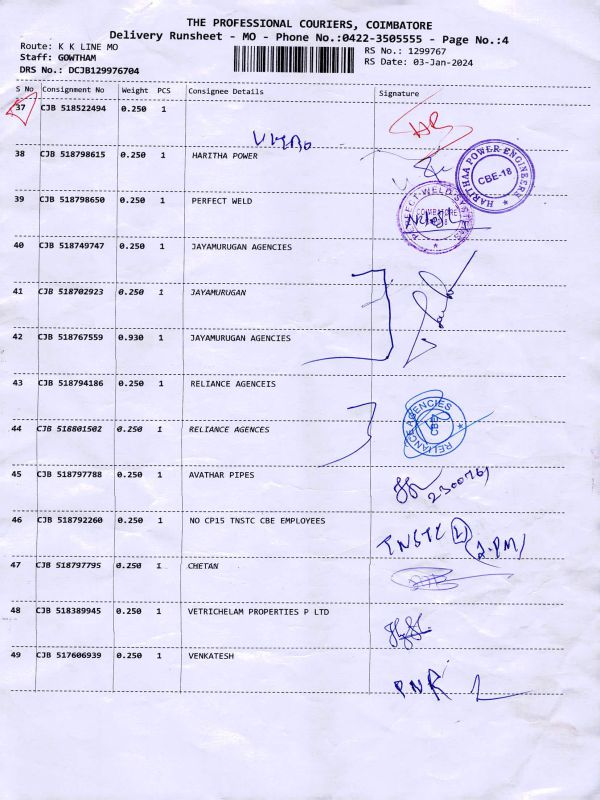 THE PROFESSIONAL COURIERS, COIMBATORE
Delivery Runsheet - MO - Phone No.:0422-3505555 - Page No.:4
Route: K K LINE MO
RS No.: 1299767
Staff: GOWTHAM
RS Date: 03-Jan-2024
DRS No.: DCJB129976704
S No Consignment No Weight PCS Consignee Details Signature
37 CJB 518522494 0.250 1
38 CJB 518798615 0.250 1 HARITHA POWER
HARITHAA POWER ENGINEERS
CBE-18
39 CJB 518798650 0.250 1 PERFECT WELD
40 CJB 518749747 0.250 1 JAYAMURUGAN AGENCIES
41 CJB 518702923 0.250 1 JAYAMURUGAN
42 CJB 518767559 0.930 1 JAYAMURUGAN AGENCIES
43 CJB 518794186 0.250 1 RELIANCE AGENCEIS
44 CJB 518801502 0.250 1 RELIANCE AGENCES
RELIANCE AGENCIES
45 CJB 518797788 0.250 1 AVATHAR PIPES
46 CJB 518792260 0.250 1 NO CP15 TNSTC CBE EMPLOYEES
TNSTC
47 CJB 518797795 0.250 1 CHETAN
48 CJB 518389945 0.250 1 VETRICHELAM PROPERTIES P LTD
49 CJB 517606939 0.250 1 VENKATESH
PNR